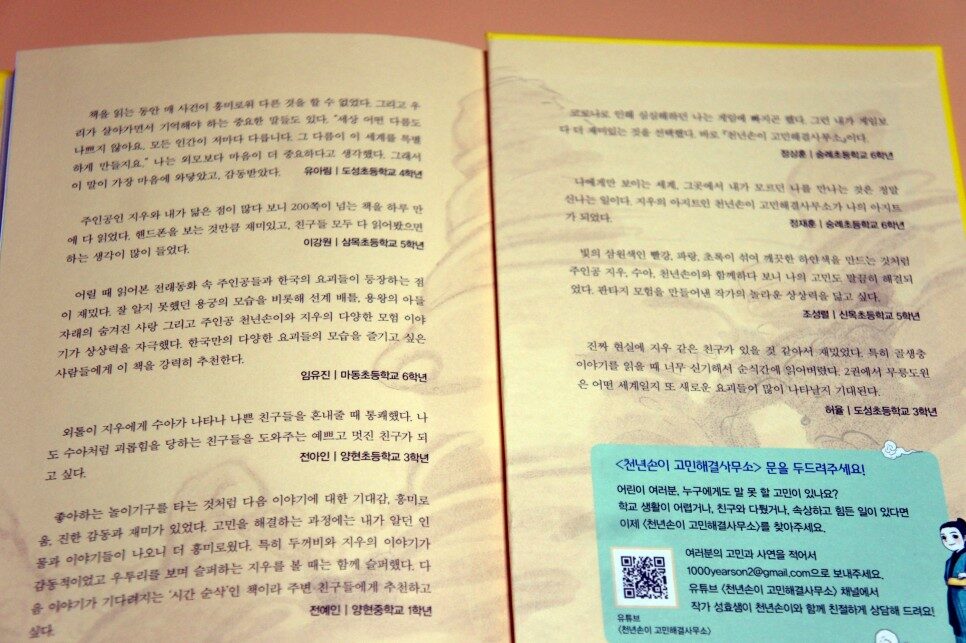 책을 읽는 동안 매 사건이 흥미로워 다른 것을 할 수 없었다. 그리고 우
리가 살아가면서 기억해야 하는 중요한 말들도 있다. "세상 어떤 다름도
나쁘지 않아요. 모든 인간이 저마다 다릅니다. 그 다름이 이 세계를 특별
하게 만들지요." 나는 외모보다 마음이 더 중요하다고 생각했다. 그래서
이 말이 가장 마음에 와닿았고, 감동받았다. 유아림 | 도성초등학교 4학년
주인공인 지우와 내가 닮은 점이 많다 보니 200쪽이 넘는 책을 하루 만
에 다 읽었다. 핸드폰을 보는 것만큼 재미있고, 친구들 모두 다 읽어봤으면
하는 생각이 많이 들었다. 이강원 | 삼목초등학교 5학년
어릴 때 읽어본 전래동화 속 주인공들과 한국의 요괴들이 등장하는 점
이 재밌다. 잘 알지 못했던 용궁의 모습을 비롯해 선계 배틀, 용왕의 아들
자래의 숨겨진 사랑 그리고 주인공 천년손이와 지우의 다양한 모험 이야
기가 상상력을 자극했다. 한국만의 다양한 요괴들의 모습을 즐기고 싶은
사람들에게 이 책을 강력히 추천한다.
임유진 | 마동초등학교 6학년
외톨이 지우에게 수아가 나타나 나쁜 친구들을 혼내줄 때 통쾌했다. 나
도 수아처럼 괴롭힘을 당하는 친구들을 도와주는 예쁘고 멋진 친구가 되
고 싶다. 전아인 | 양현초등학교 3학년
좋아하는 놀이기구를 타는 것처럼 다음 이야기에 대한 기대감, 흥미로
움, 진한 감동과 재미가 있었다. 고민을 해결하는 과정에는 내가 알던 인
물과 이야기들이 나오니 더 흥미로웠다. 특히 두꺼비와 지우의 이야기가
감동적이었고 우투리를 보며 슬퍼하는 지우를 볼 때는 함께 슬퍼했다. 다
음 이야기가 기다려지는 '시간 순삭'인 책이라 주변 친구들에게 추천하고
싶다. 전예인 | 양현중학교 1학년
코로나로 인해 심심해하던 나는 게임에 빠지곤 했다. 그런 내가 게임보
다 더 재미있는 것을 선택했다. 바로 『천년손이 고민해결사무소』이다.
정상훈 | 숭례초등학교 6학년
나에게만 보이는 세계, 그곳에서 내가 모르던 나를 만나는 것은 정말
신나는 일이다. 지우의 아지트인 천년손이 고민해결사무소가 나의 아지트
가 되었다. 정재훈 | 숭례초등학교 6학년
빛의 삼원색인 빨강, 파랑, 초록이 섞여 깨끗한 하얀색을 만드는 것처럼
주인공 지우, 수아, 천년손이와 함께하다 보니 나의 고민도 말끔히 해결되
었다. 판타지 모험을 만들어낸 작가의 놀라운 상상력을 닮고 싶다.
조성렬 | 신목초등학교 5학년
진짜 현실에 지우 같은 친구가 있을 것 같아서 재밌었다. 특히 골생충
이야기를 읽을 때 너무 신기해서 순식간에 읽어버렸다. 2권에서 무릉도원
은 어떤 세계일지 또 새로운 요괴들이 많이 나타날지 기대된다.
허율 | 도성초등학교 3학년
<천년손이 고민해결사무소> 문을 두드려주세요!
어린이 여러분, 누구에게도 말 못 할 고민이 있나요?
학교 생활이 어렵거나, 친구와 다퉜거나, 속상하고 힘든 일이 있다면
이제 <천년손이 고민해결사무소>를 찾아주세요.
여러분의 고민과 사연을 적어서
1000yearson2@gmail.com으로 보내주세요.
유튜브 <천년손이 고민해결사무소> 채널에서
작가 성효샘이 천년손이와 함께 친절하게 상담해 드려요!
유튜브
<천년손이 고민해결사무소>